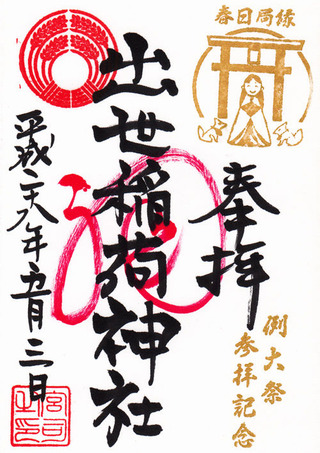 春日局縁
奉拝
例大祭
参拝記念
出世稲荷神社
平成二十八年五月三日
宮司之印